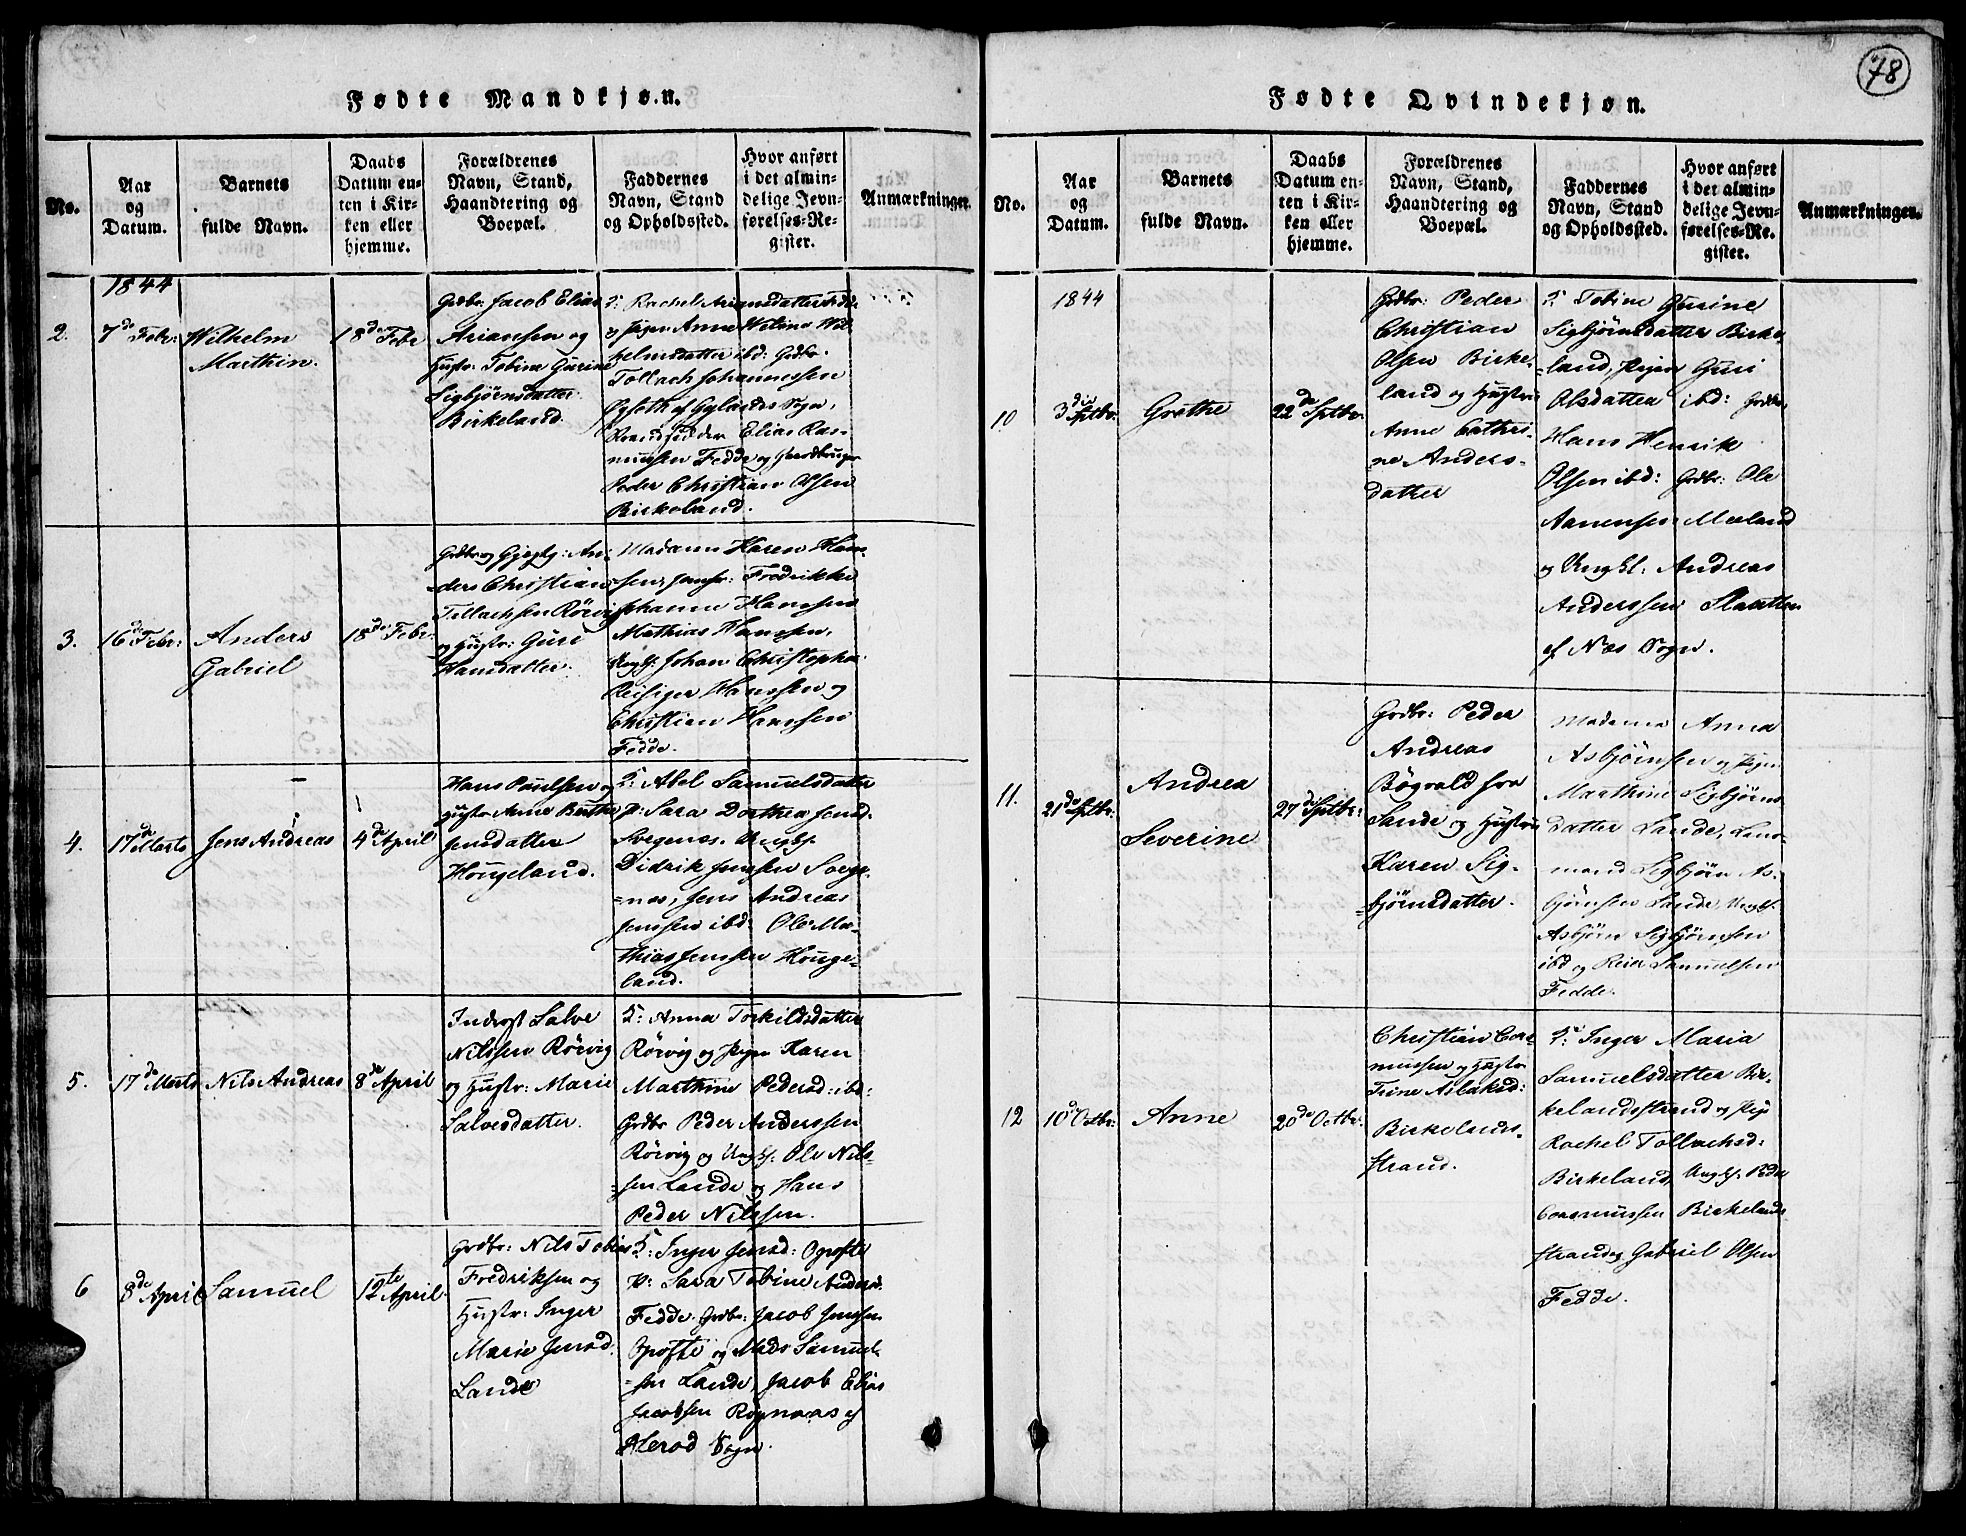 78
Fødte Mandkjøn.
No.
Aar
og
Datum.
Barnets
fulde Navn.
Daabs
Datum en-
ten i Kir-
ken eller
hjemme.
Forældrenes
Navn, Stand,
Haandtering og
Boepæl.
Faddernes
Navn, Stand
og Opholdssted.
Hvor anført
i det almin-
delige Jevn-
førelses-Re-
gister.
Anmærkninger.
1844
2.
7de Febr:
Wilhelm
Marthin.
18de Febr
Grdbr: Jacob Elias
Ariansen og
Hustr: Tobine Gurine
Sigbjørnsdatter
Birkeland.
F: Rachel Ariansdatter
og Pigen Anne Wilhelms-
kelmsdatter ibd: Grdbr.
Tollach Johannessen
Øyseth af Gylands Sogn,
Elias Ras-
mussen Fedde og Gaardbruger
Peder Christian Olsen
Birkeland.
3.
16de Febr:
Anders
Gabriel
18de Febr.
Grdbr og Gjestg: An-
ders Christian
Tollachsen Rörvig
og Hustr: Guri
Hansdatter.
Madame Karen Han-
sen, Jomfr: Fredrikke
Johanne Hanssen
Mathias Hanssen,
Ungk: Johan Christopher
Reisiger Hanssen og
Christian Hanssen
Fedde.
4.
17de Marts
Jens Andreas
4de April
Hans Paulsen og
Hustr Anne Berthe
Jensdatter
Hougeland.
F: Abel Samuelsdatter
P: Sara Dorthea Jensd.
Svegenæs. Ungk:
Didrik Jenssen Svege-
=næs, Jens Andreas
Jenssen ibd: Ole Ma-
thias Jenssen Houge-
land.
5.
17de Marts
Nils Andreas
8de April
Inderst Salve
Nilssen Rörvig
og Hustr: Marie
Salvesdatter.
F: Anna Torkildsdatter
Rörvig og Pigen Karen
Marthine Pedersd: ibd:
Grdbr Peder Anderssen
Rörvig og Ungk: Ole Nils-
=sen Lande og Hans
Peder Nilssen.
6
8de April
Samuel
12te April.
Grdbr: Nils Tobias
Fredriksen og
Hustr: Inger
Marie Jensd.
Lande
F: Inger Jensd: Opofte
P: Sara Tobine Anders.
Fedde. Grdbr: Jacob Jenssen
Opofte og Mads Samuel-
=sen Lande, Jacob Elias
Jacobsen Røgnaas af
Herad Sogn.
Fødte Qvindekjøn.
No.
Aar
og
Datum.
Barnets
fulde Navn.
Daabs
Datum en-
ten i Kir-
ken eller
hjemme.
Forældrenes
Navn, Stand,
Haandtering og
Boepæl.
Faddernes
Navn, Stand
og Opholdssted.
Hvor anført
i det almin-
delige Jevn-
førelses-Re-
gister.
Anmærkninger.
1844
10
3die Sptbr:
Grethe
22de Sptbr.
Grdbr: Peder
Christian
Olsen Birke-
land og Hustrue
Anne Cathri-
ne Anders-
datter
F: Tobine Gurine
Sigbjörnsdatter Birke-
land, Pigen Guri
Olsdatter ibd: Grdbr.
Hans Henrik
Olsen ibd: Grdbr: Ole
Aanensen Meland
og Ungkl: Andreas
Anderssen Slaatten
af Næs Sogn.
11.
21de Sptbr:
Andrea
Severine
27de Sptbr:
Grdbr: Peder
Andreas
Bögvald fra
Sande og Hustrue
Karen Sig-
=björnsdatter.
Madame Anna
Asbjörnsen og Pigen
Marthine Sigbjörns
datter Lande, Lens-
mand Sigbjörn As-
björnsen Lande, Ungk.
Asbjörn Sigbjörnsen
ibd og Reier Samuelsen
Fedde.
12
10de Octbr:
Anne
20de Octbr.
Christian Cor-
mussen og Hustr
Trine Aslaksd:
Birkelands-
strand.
F: Inger Maria
Samuelsdatter Bir-
kelandsstrand og Pige
Rachel Tollachsd:
Birkeland, Ungk: Peder
Cormussen Birkelands
strand og Gabriel Olsen
Fedde.